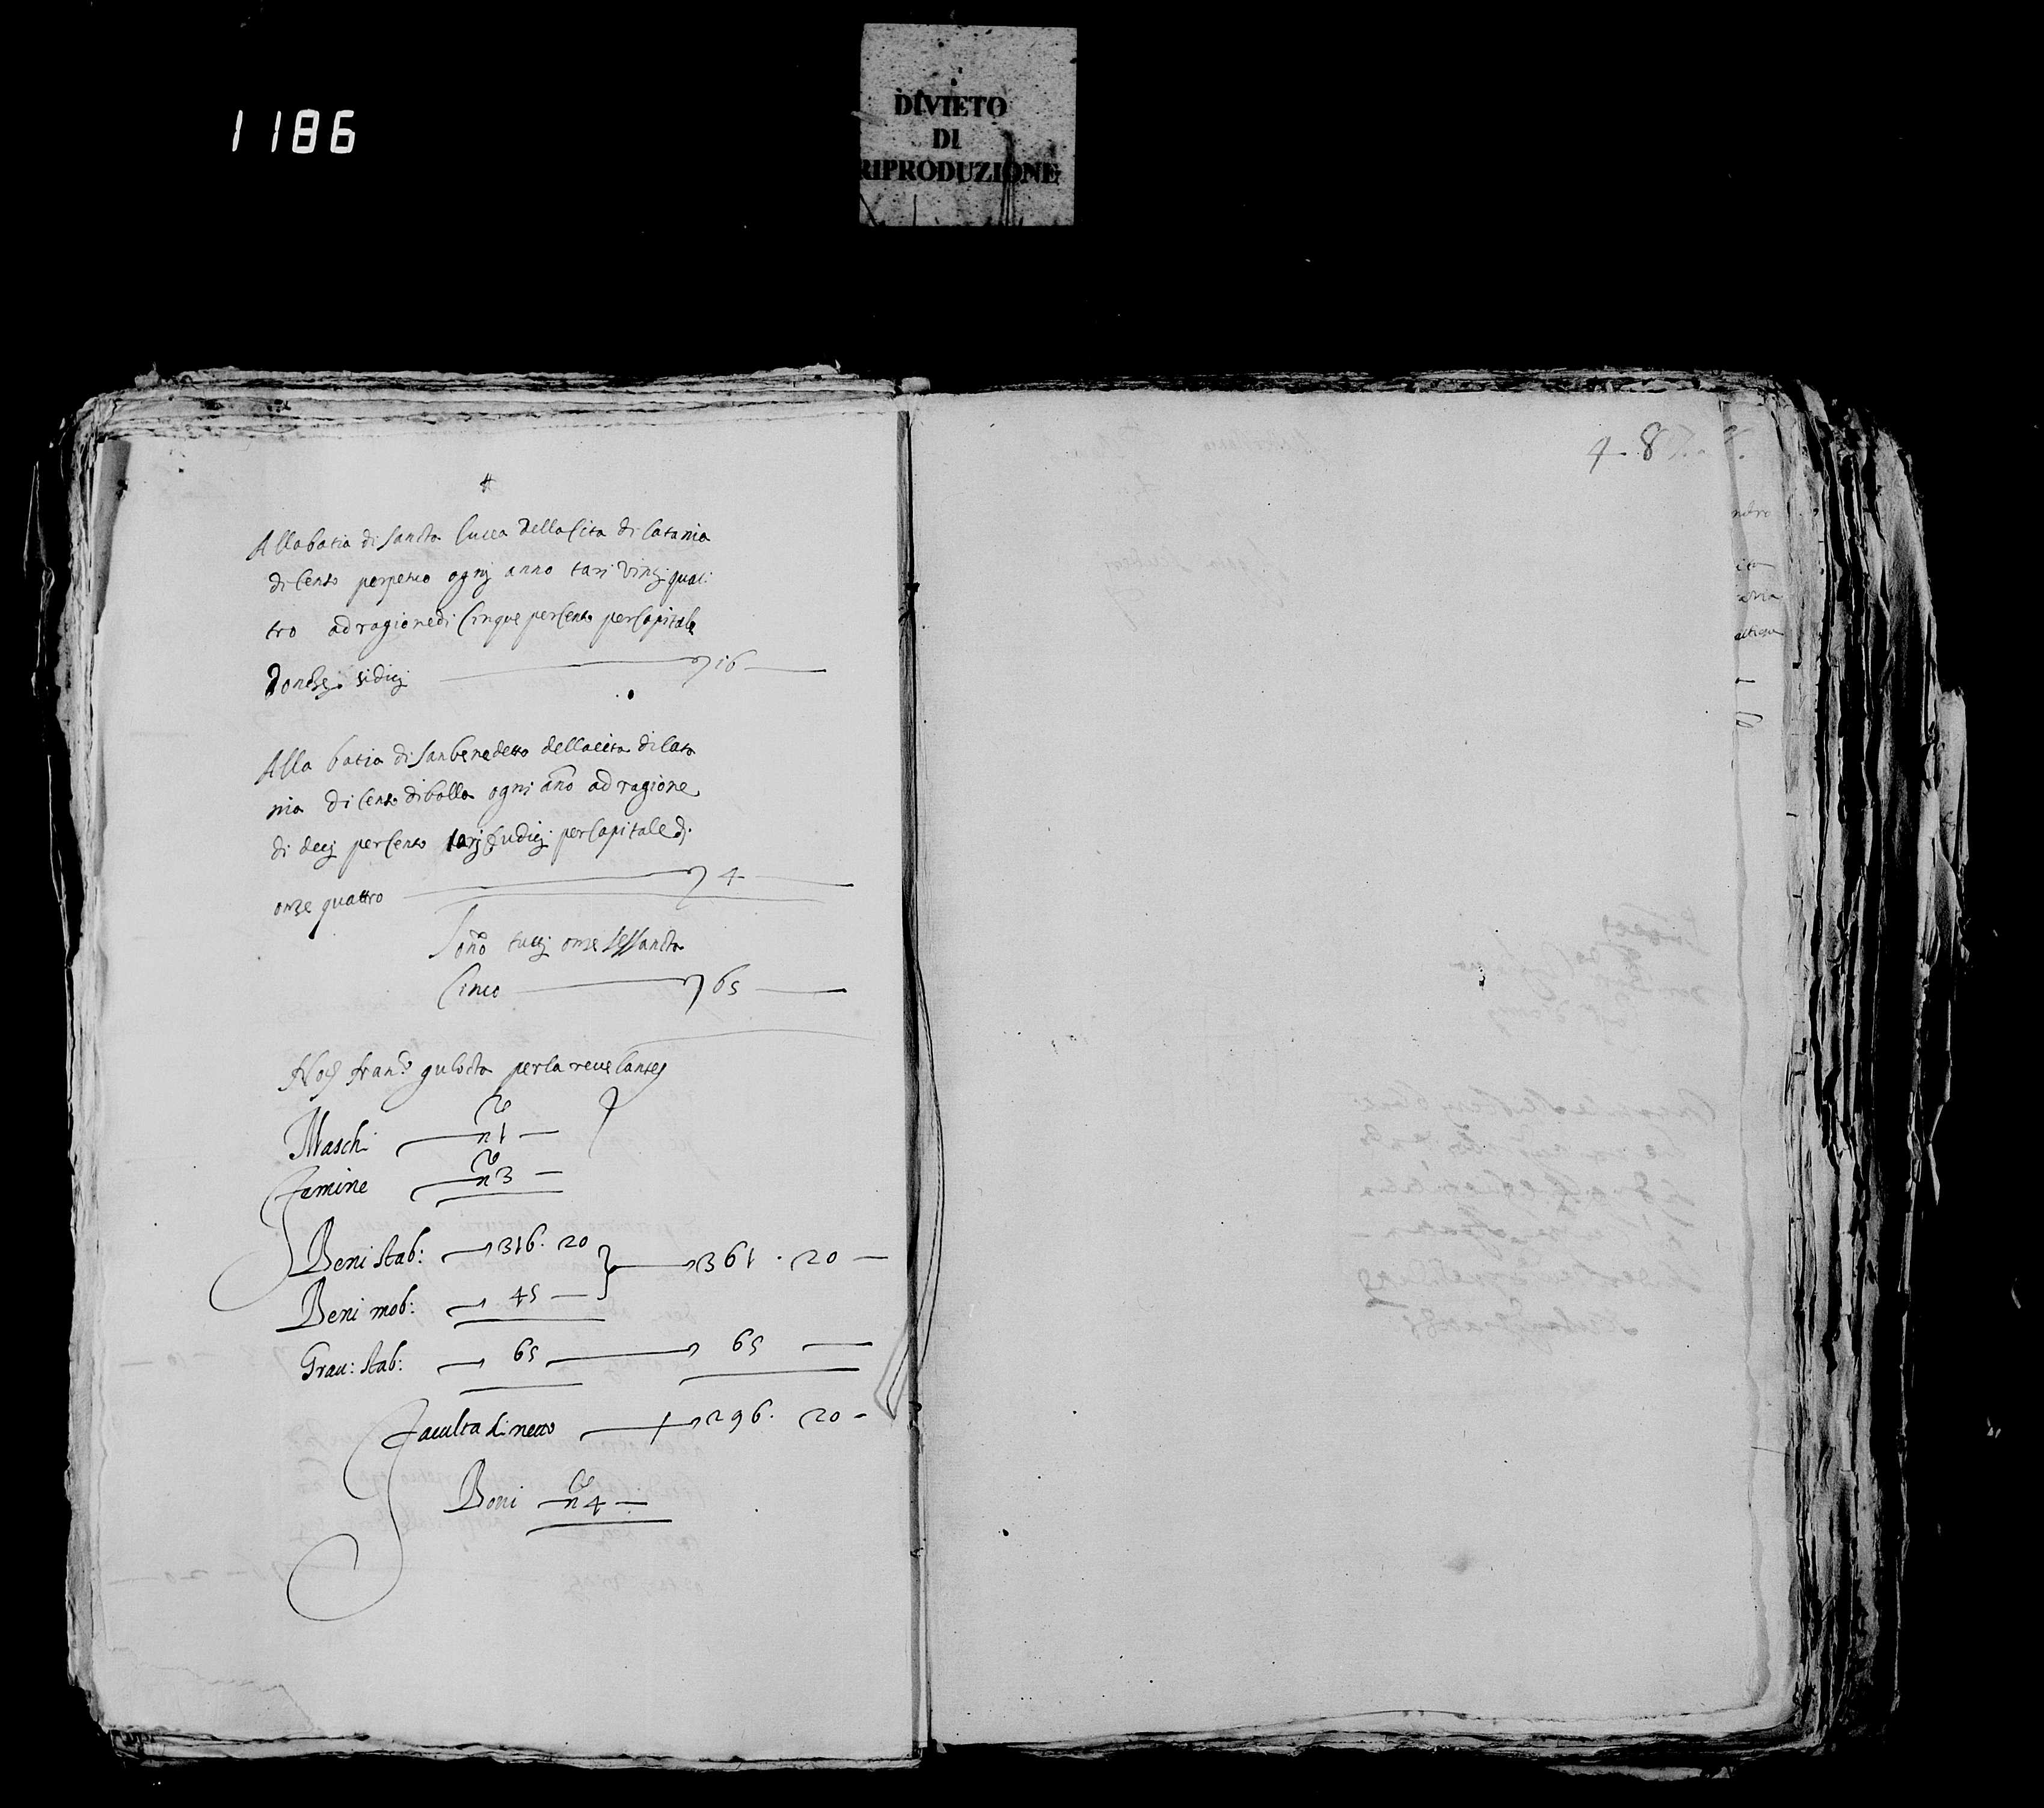 1186
DIVIETO
DI
RIPRODUZIONE
Alla batia di Sancta Lucca della Cita di Catania
di Censo perpetuo ogni anno tari vinti quat
tro ad ragione di Cinque per Cento per Capitale
d onze sidici 16
Alla batia di San benedetto della cita di Cata
nia di Censo di bolla ogni anno ad ragione
di deci per Cento tari dudici per Capitale di
onze quattro 4
Sono tutti onze sessanta
Cinco 65
Franco gulocta per la revelante
Maschi n 1
Femine n 3
Beni stab: 316. 20 361. 20
Beni mob: 45
Grau: stab: 65 65
Faculta di netto 296. 20
Boni n 4
4 8